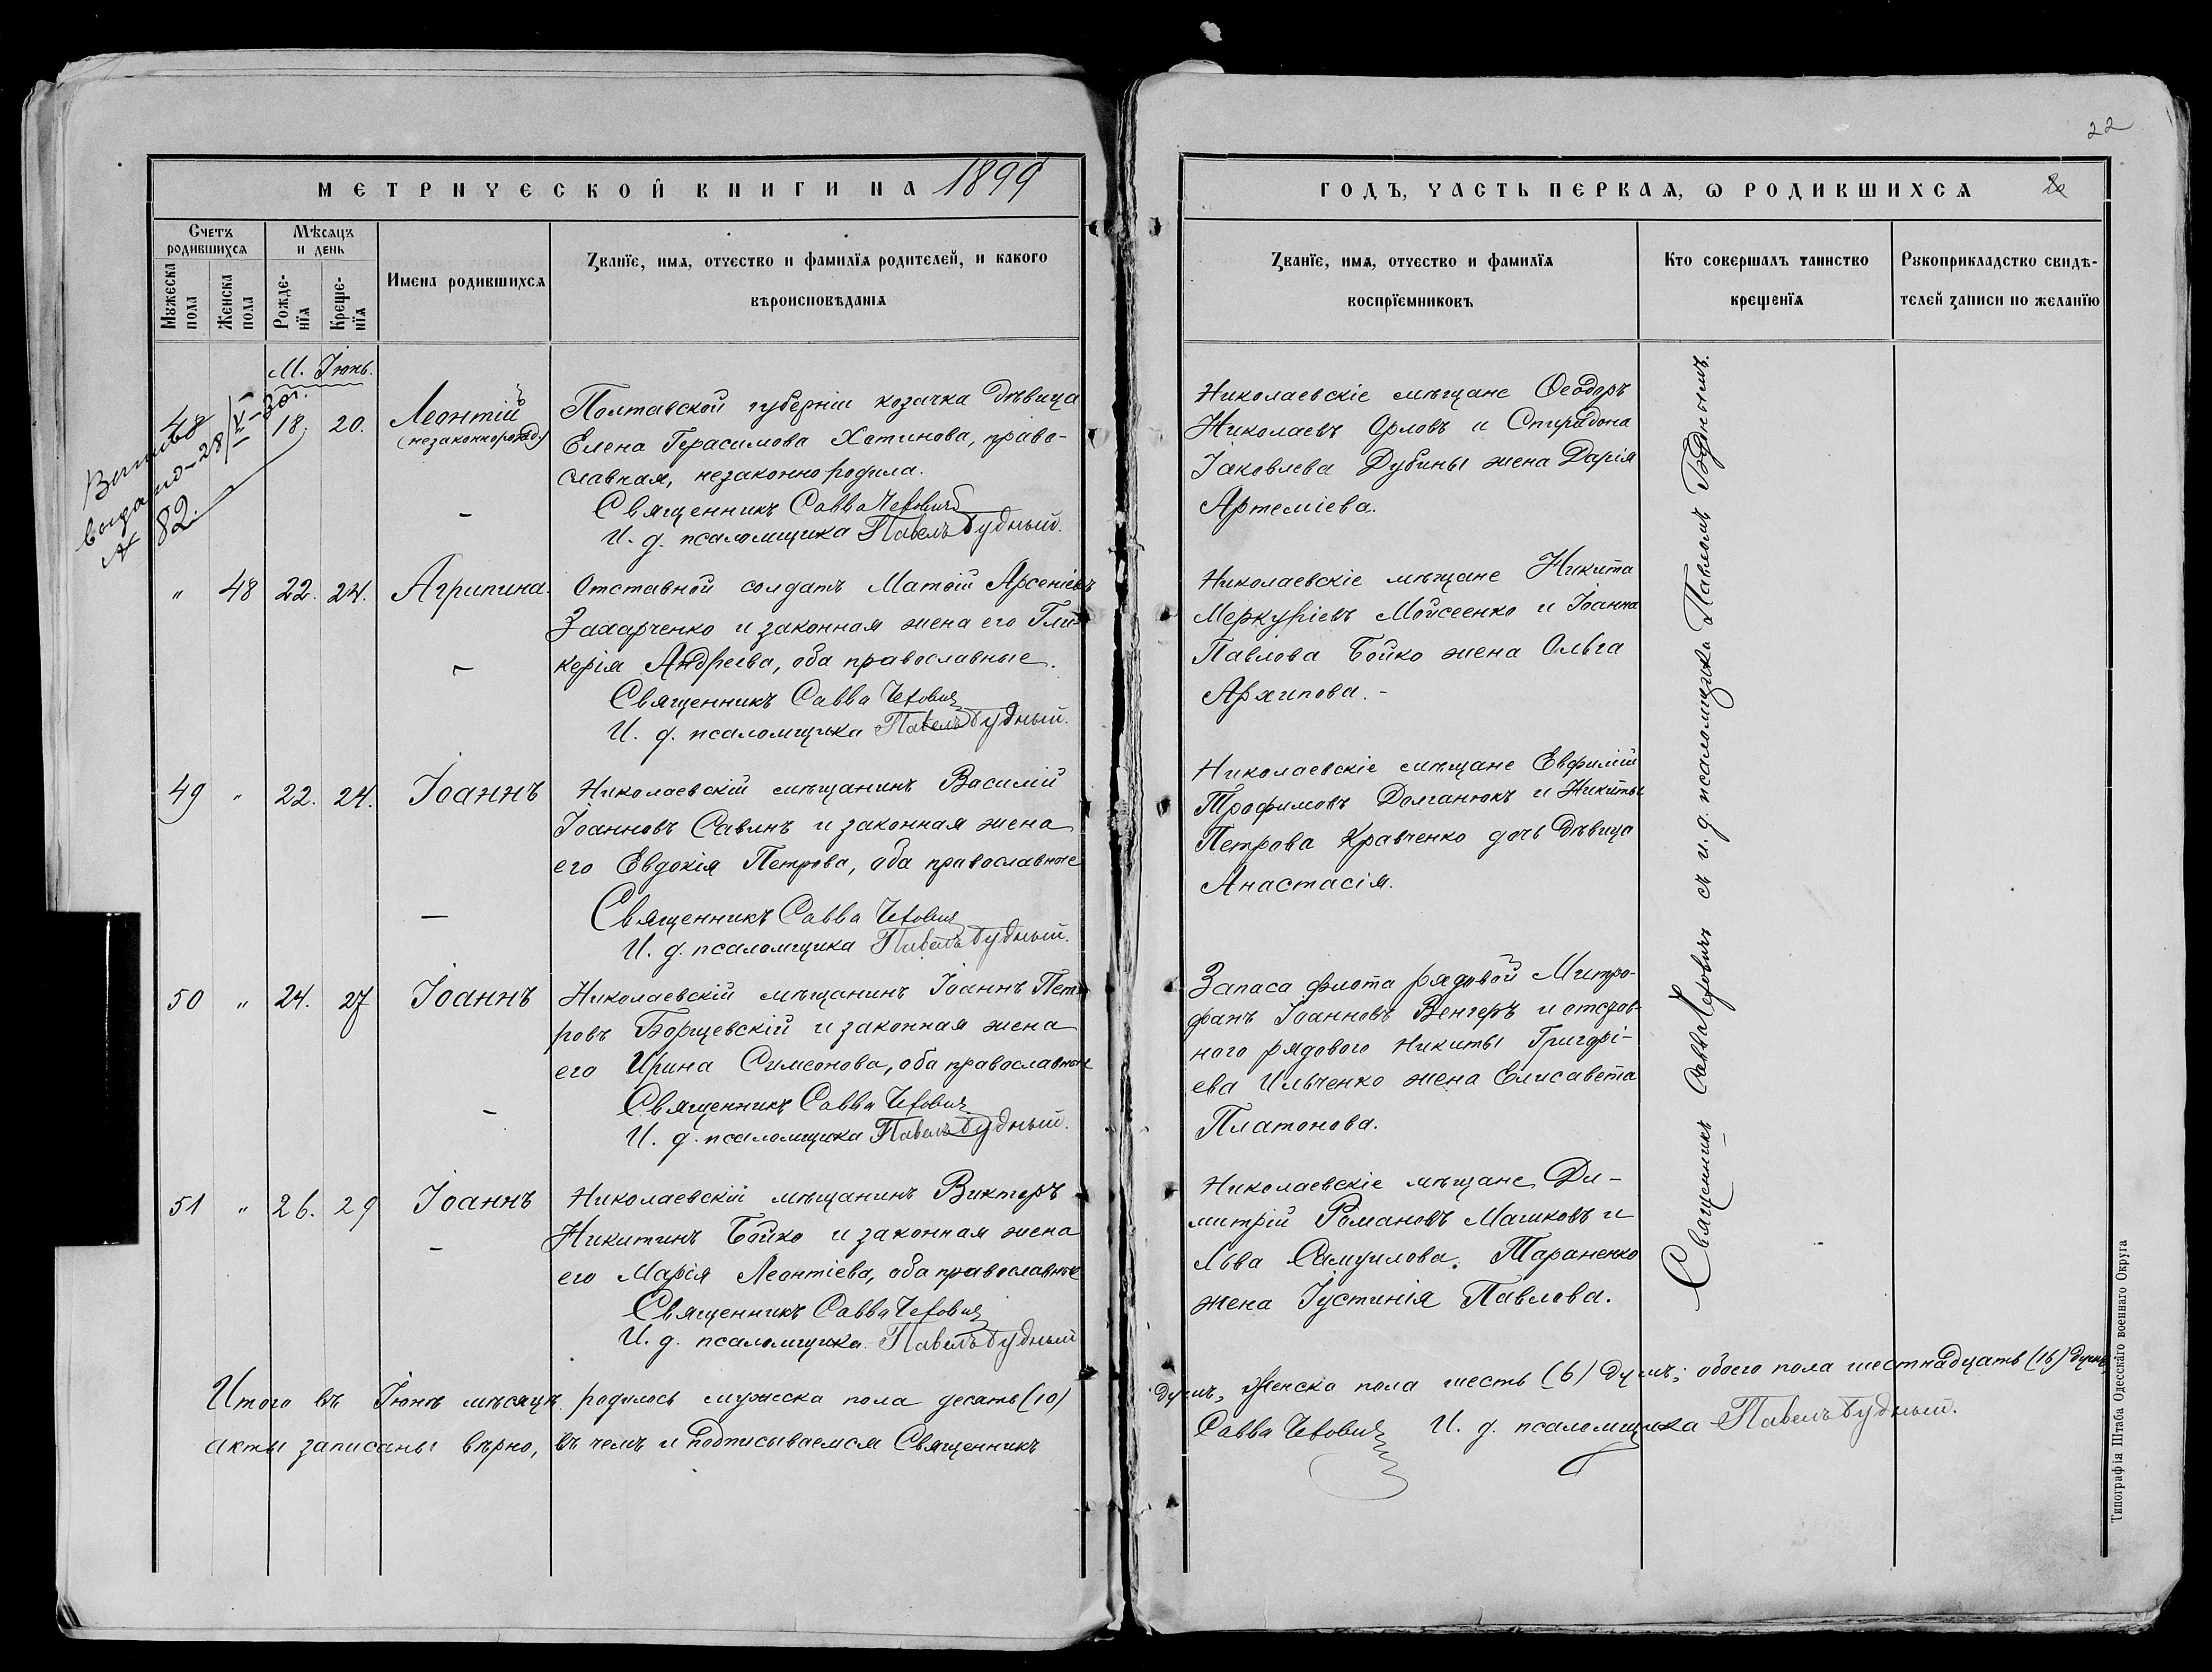 22
МЕТРИЧЕСКОЙ КНИГИ НА 1899
Счетъ родившихся
Мѣсяцъ и день
Мужеска пола
Женска пола
Рожде-нїя
Креще-нїя
Имена родившихся
Званїе, имя, отчество и фамилїя родителей, и какого
вѣроисповѣданія
М. Іюнь.
48
18. 20.
Леонтій
(незаконнорожд.)
выдано - 28/V - 30г.
№ 82.
Полтавской губерніи козачка дѣвица
Елена Герасимова Хотинова, право-
славная, незаконно родила.
Священникъ Савва
И. д. псаломщика Павелъ Будный.
" 48 22. 24. Агрипина.
Отставной солдатъ Матѳій Арсеніевъ
Захарченко и законная жена его Гли-
керія Андреева, оба православные.
Священникъ Савва
И. д. псаломщика Павелъ Будный.
49 " 22. 24. Іоаннъ
Николаевскій мѣщанинъ Василій
Іоанновъ Савинъ и законная жена
его Евдокія Петрова, оба православные
Священникъ Савва
И. д. псаломщика Павелъ Будный.
50 " 24. 27 Іоаннъ
Николаевскій мѣщанинъ Іоаннъ Пет-
ровъ Борщевскій и законная жена
его Ирина Симеонова, оба православные
Священникъ Савва
И. д. псаломщика Павелъ Будный.
51 " 26. 29 Іоаннъ
Николаевскій мѣщанинъ Викторъ
Никитинъ Бойко и законная жена
его Марія Леонтіева, оба православные
Священникъ Савва
И. д. псаломщика Павелъ Будный
Итого въ Іюнѣ мѣсяцѣ родилось мужеска пола десять (10)
акты записаны вѣрно, въ чемъ и подписываемся Священникъ
ГОДЪ, ЧАСТЬ ПЕРВАЯ, Ѡ РОДИВШИХСЯ
Званїе, имя, отчество и фамилїя
воспрїемниковъ
Кто совершалъ таинство
крещенїя
Рукоприкладство свидѣ-
телей записи по желанїю
Николаевскіе мѣщане Ѳеодоръ
Николаевъ Орловъ и Спиридона
Іаковлева Дубины жена Дарія
Артеміева.
Николаевскіе мѣщане Никита
Меркуріевъ Мойсеенко и Іоанна
Павлова Бойко жена Ольга
Архипова. -
Николаевскіе мѣщане Евфимій
Трофимовъ Долганюкъ и Никиты
Петрова Кравченко дочь дѣвица
Анастасія.
Запаса флота рядовой Митро-
фанъ Іоанновъ Венгеръ и отстав-
ного рядового Никиты Григорі-
ева Ильченко жена Елисавета
Платонова.
Николаевскіе мѣщане Ди-
митрій Романовъ Машковъ и
Льва Самуилова Тараненко
жена Іустинія Павлова.
Священникъ Савва съ и. д. псаломщика Павломъ Буднымъ.
душъ, женска пола шесть (6) душъ; обоего пола шестнадцать (16) душъ;
Савва И. д. псаломщика Павелъ Будный.
Типографія Штаба Одесскаго военнаго Округа